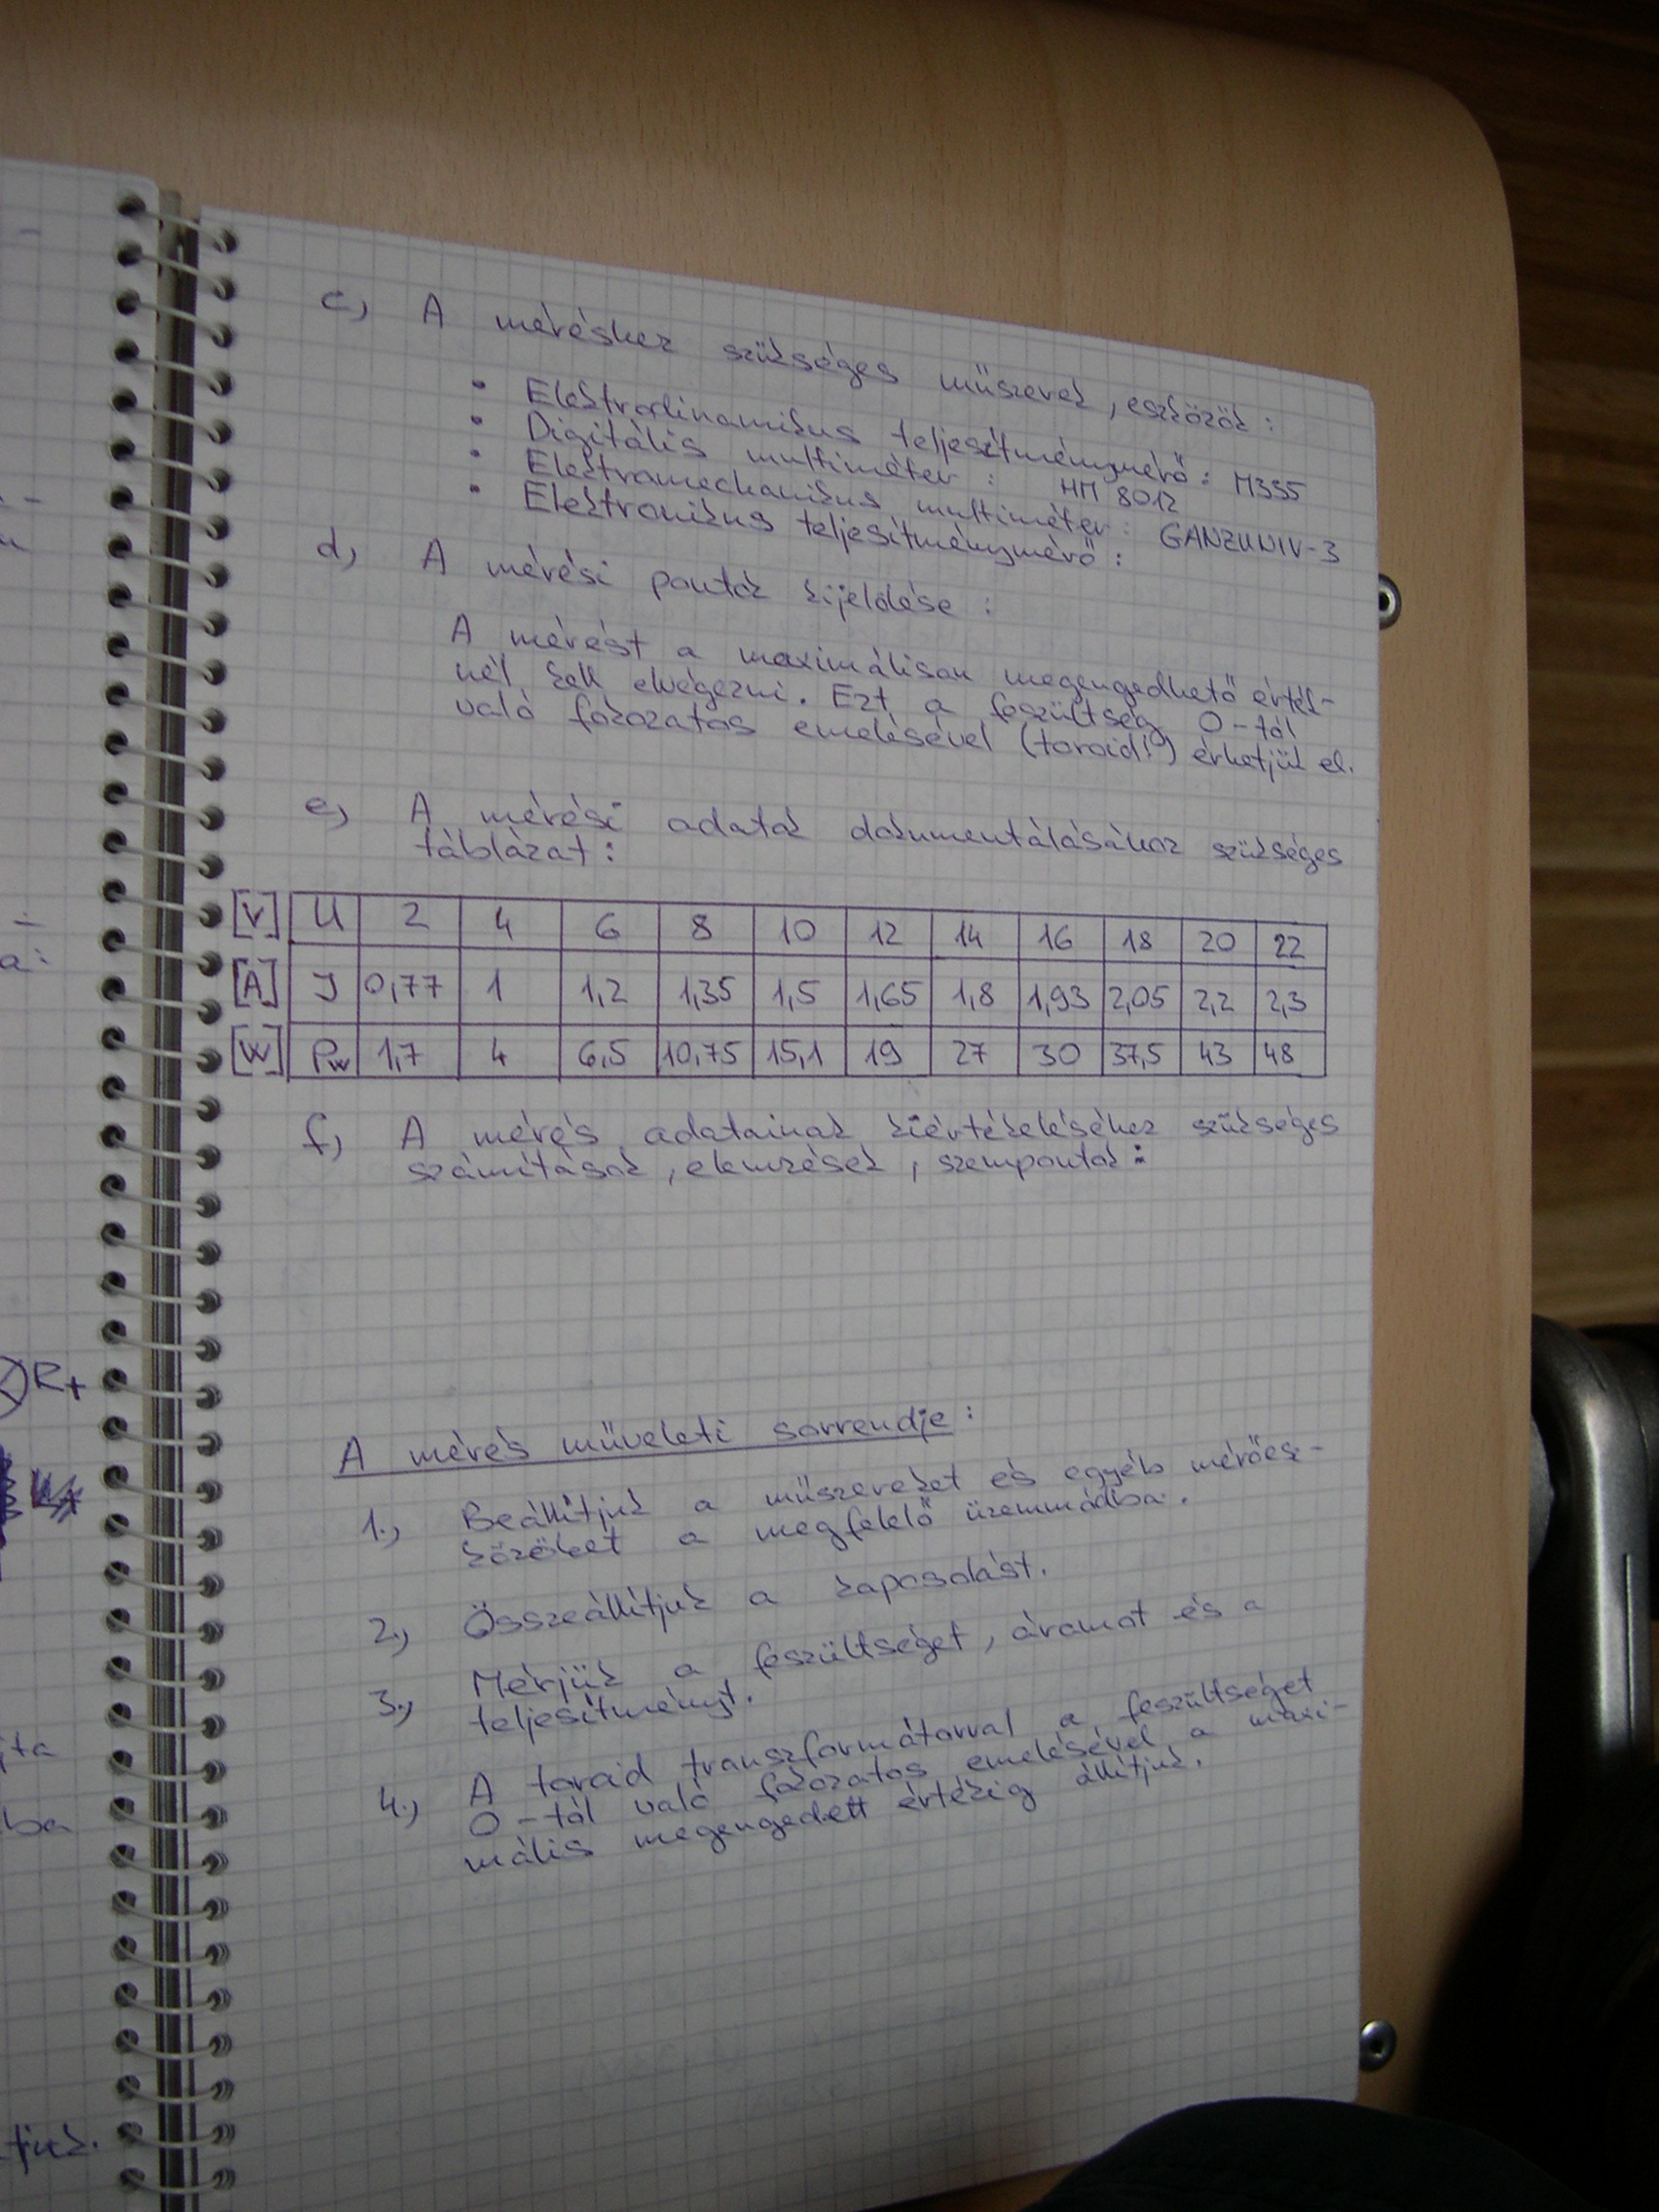 c) A méréshez szükséges műszerek, eszközök:
• Elektrodinamikus teljesítménymérő: M335
• Digitális multiméter: HM 8012
• Elektromechanikus multiméter: GANZUNIV-3
• Elektronikus teljesítménymérő:
d) A mérési pontok kijelölése:
A mérést a maximálisan megengedhető érték-
nél kell elvégezni. Ezt a feszültség 0-tól
való fokozatos emelésével (toroid!) érhetjük el.
e) A mérési adatok dokumentálásához szükséges
táblázat:
[V] U 2 4 6 8 10 12 14 16 18 20 22
[A] I 0,77 1 1,2 1,35 1,5 1,65 1,8 1,93 2,05 2,2 2,3
[W] Pw 1,7 4 6,5 10,75 15,1 19 27 30 37,5 43 48
f) A mérés adatainak kiértékeléséhez szükséges
számítások, elemzések, szempontok:
A mérés műveleti sorrendje:
1., Beállítjuk a műszereket és egyéb mérőesz-
közöket a megfelelő üzemmódba.
2., Összeállítjuk a kapcsolást.
3., Mérjük a feszültséget, áramot és a
teljesítményt.
4., A toroid transzformátorral a feszültséget
0-tól való fokozatos emelésével a maxi-
mális megengedett értékig állítjuk.
R+